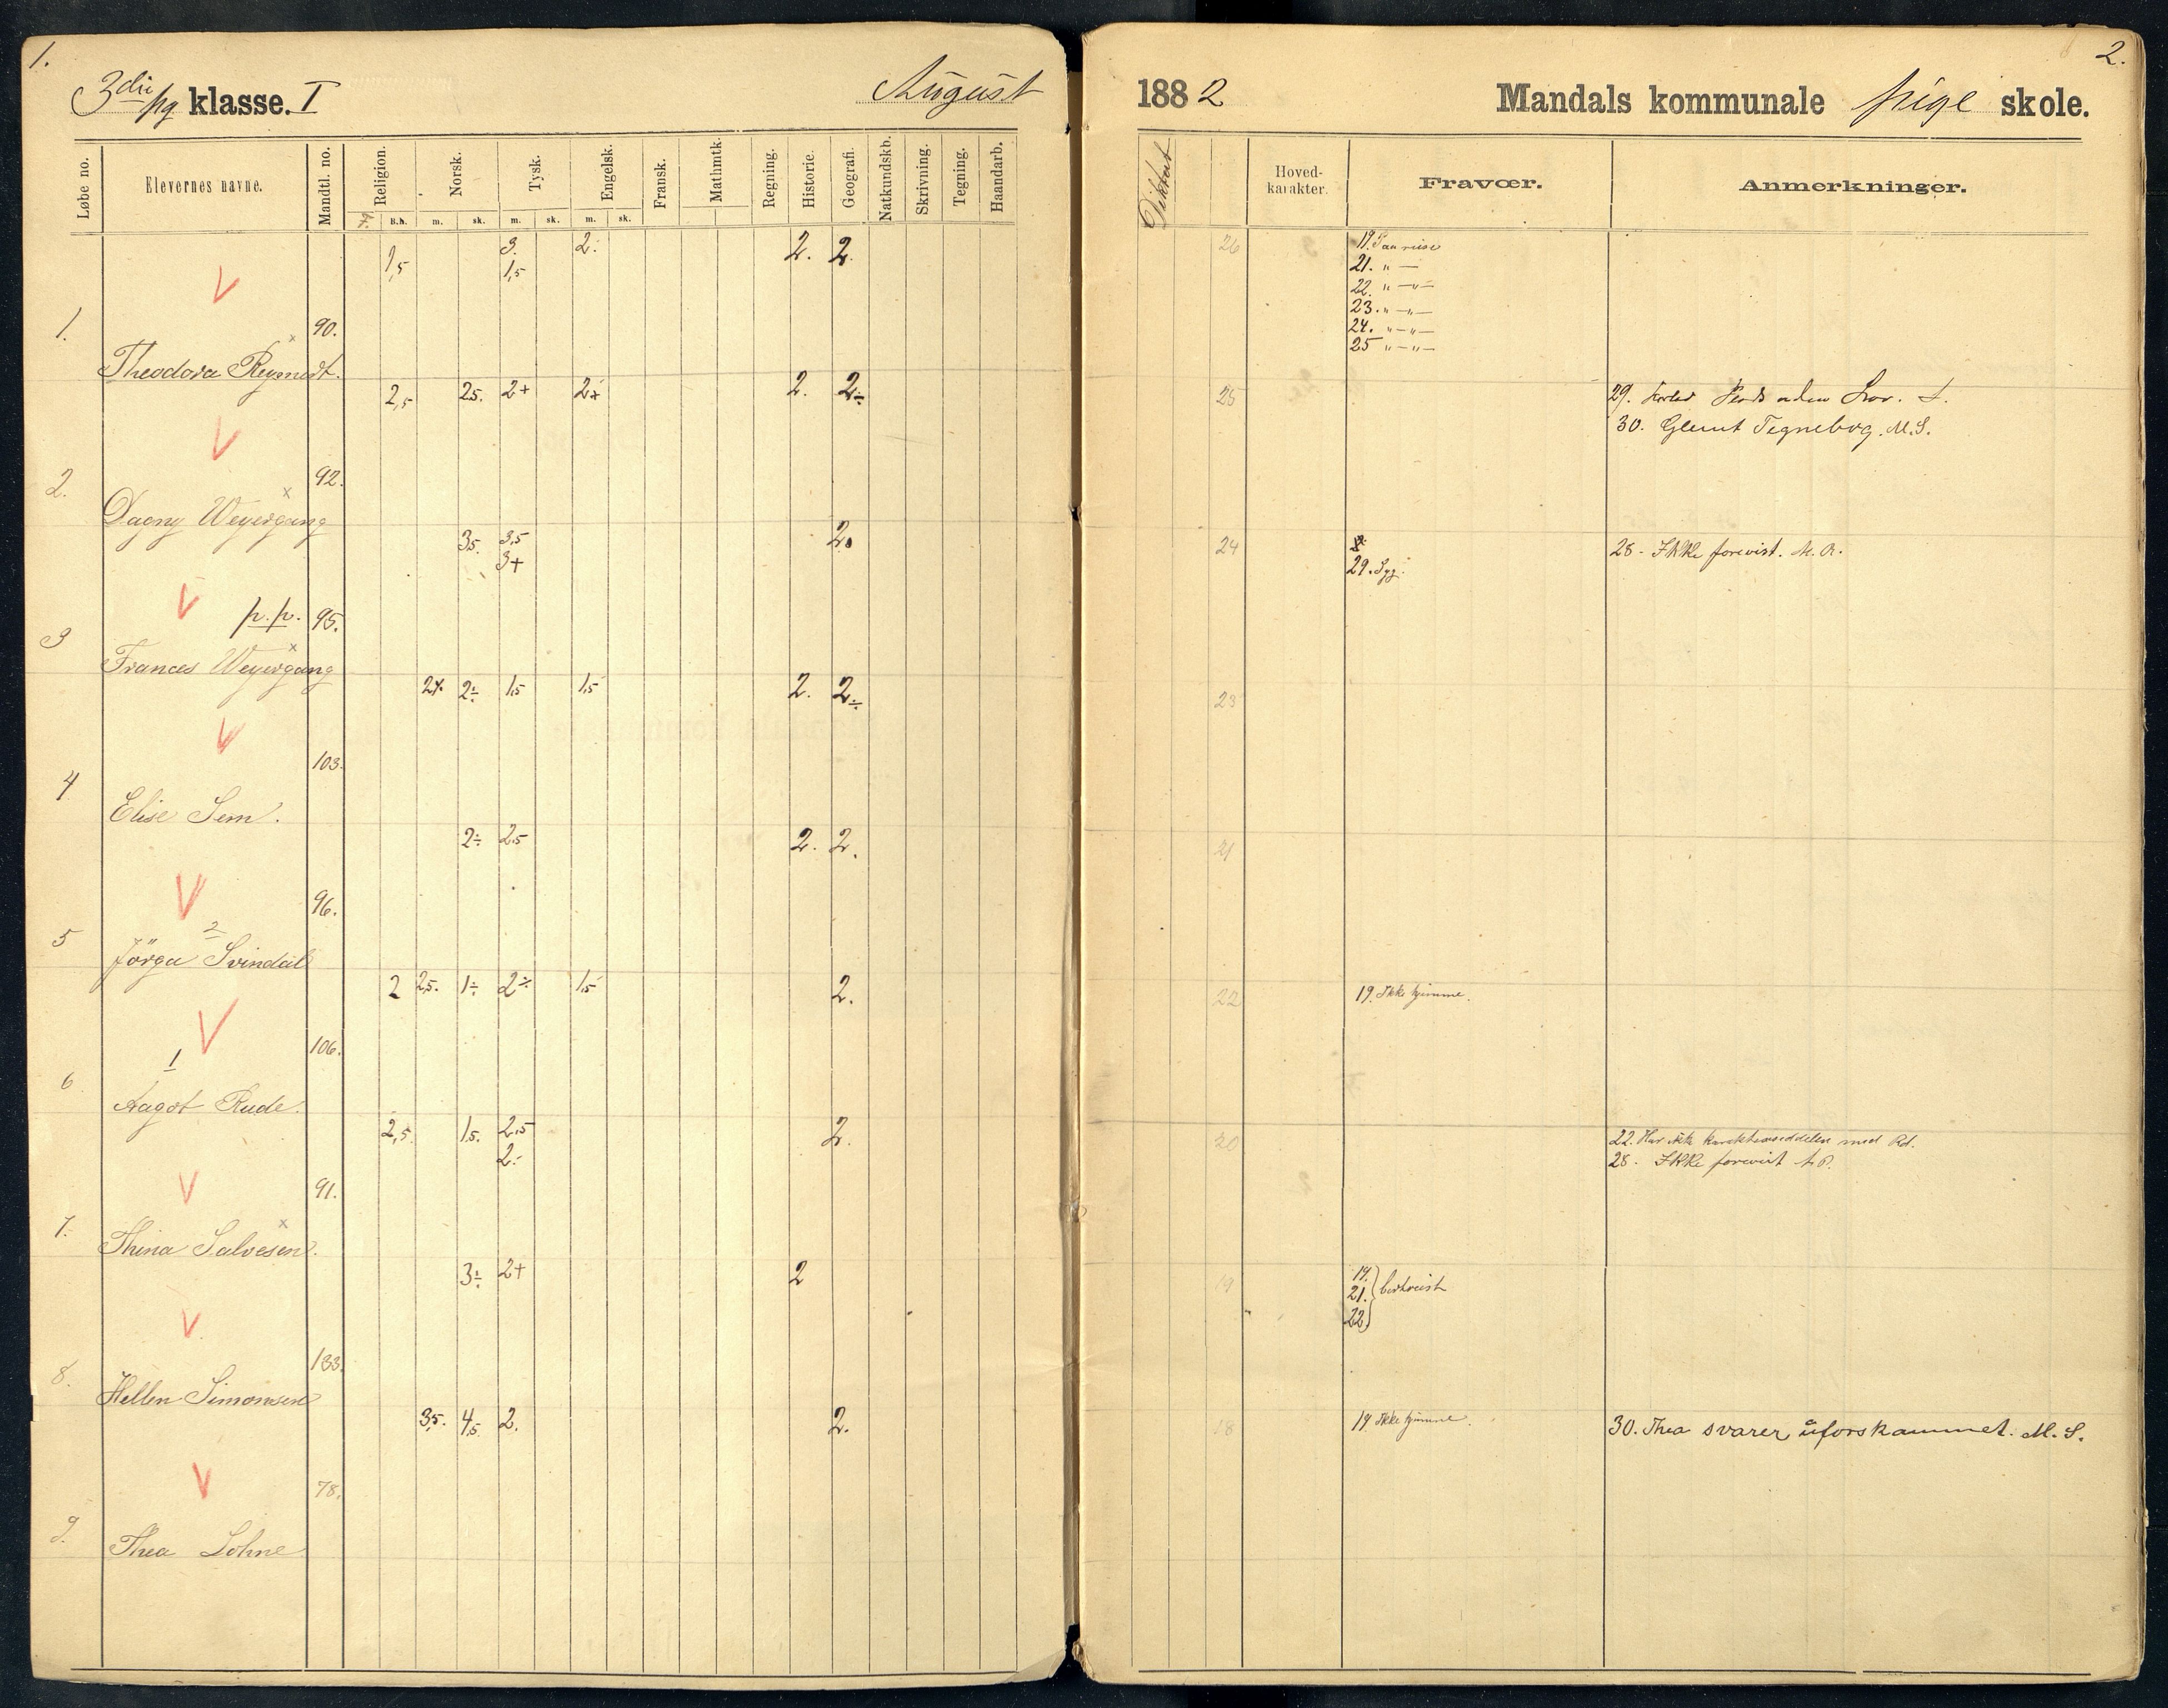 1.
3die pg klasse. I
August
Løbe no.
Elevernes navne.
Mandtl. no.
Religion.
B.h.
Norsk.
m.
sk.
Tysk.
m.
sk.
Engelsk.
m.
sk.
Fransk.
Mathmtk.
Regning.
Historie.
Geografi.
Natkundskb.
Skrivning.
Tegning.
Haandarb.
1,5 3. 2. 2. 2.
1,5
V
1. 90.
Theodora
2,5 2,5. 2+ 2+ 2. 2÷
V
2. 92.
Dagny Weyergang
3,5. 3,5 2.
3+
V
p.p. 95.
3
Frances Weyergang
2÷ 1,5 1,5 2. 2÷
V
103.
4
Elise Sem.
2÷ 2,5 2. 2.
V
96.
5 2
Jörga Svindal
2 2,5. 1÷ 2÷ 1,5 2.
V
106.
6 1
Aagot Rude.
2,5. 1,5. 2,5 2.
2÷
V
91.
7.
Thina Salvesen.
3÷ 2+ 2
V
133.
8.
Hellen Simonsen
3,5. 4,5 2. 2.
V
78.
9.
Thea Lohne
2.
1882 Mandals kommunale pige skole.
Diktat
Hoved-
karakter.
Fravær.
Anmerkninger.
26 19.
21. " —
22. " —"—
23. " —"—
24. " —"—
25 " —"—
25 29. uden
30. Glemt Tegnebog. M.S.
24 28. Ikke forevist.
29. Syg.
23
21
22 19. Ikke hjemme.
20 22. Har ikke med
28. Ikke forevist
19 19.
21. bortreist
22
18 19. Ikke hjemme. 30. Thea svarer uforskammet. M. S.